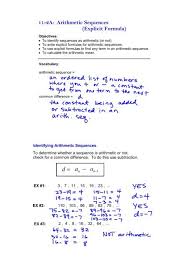 11-2A: Arithmetic Sequences
(Explicit Formula)
Objectives:
• To identify sequences as arithmetic (or not)
• To write explicit formulas for arithmetic sequences.
• To use explicit formulas to find any term in an arithmetic sequence.
• To calculate the arithmetic mean.
Vocabulary:
arithmetic sequence = an ordered list of numbers
where you + or - a constant to
get from one term to the next
common difference = the constant being added
or subtracted in an
arith. seq.
Identifying Arithmetic Sequences
To determine whether a sequence is arithmetic or not,
check for a common difference. To do this use subtraction.
EX #1: 3, 7, 11, 15, 19, 23, ... yes
d=4
EX #2: yes
d=-7
EX #3: NOT arithmetic
64-32 = 32
32-16 = 16
16-8 = 8